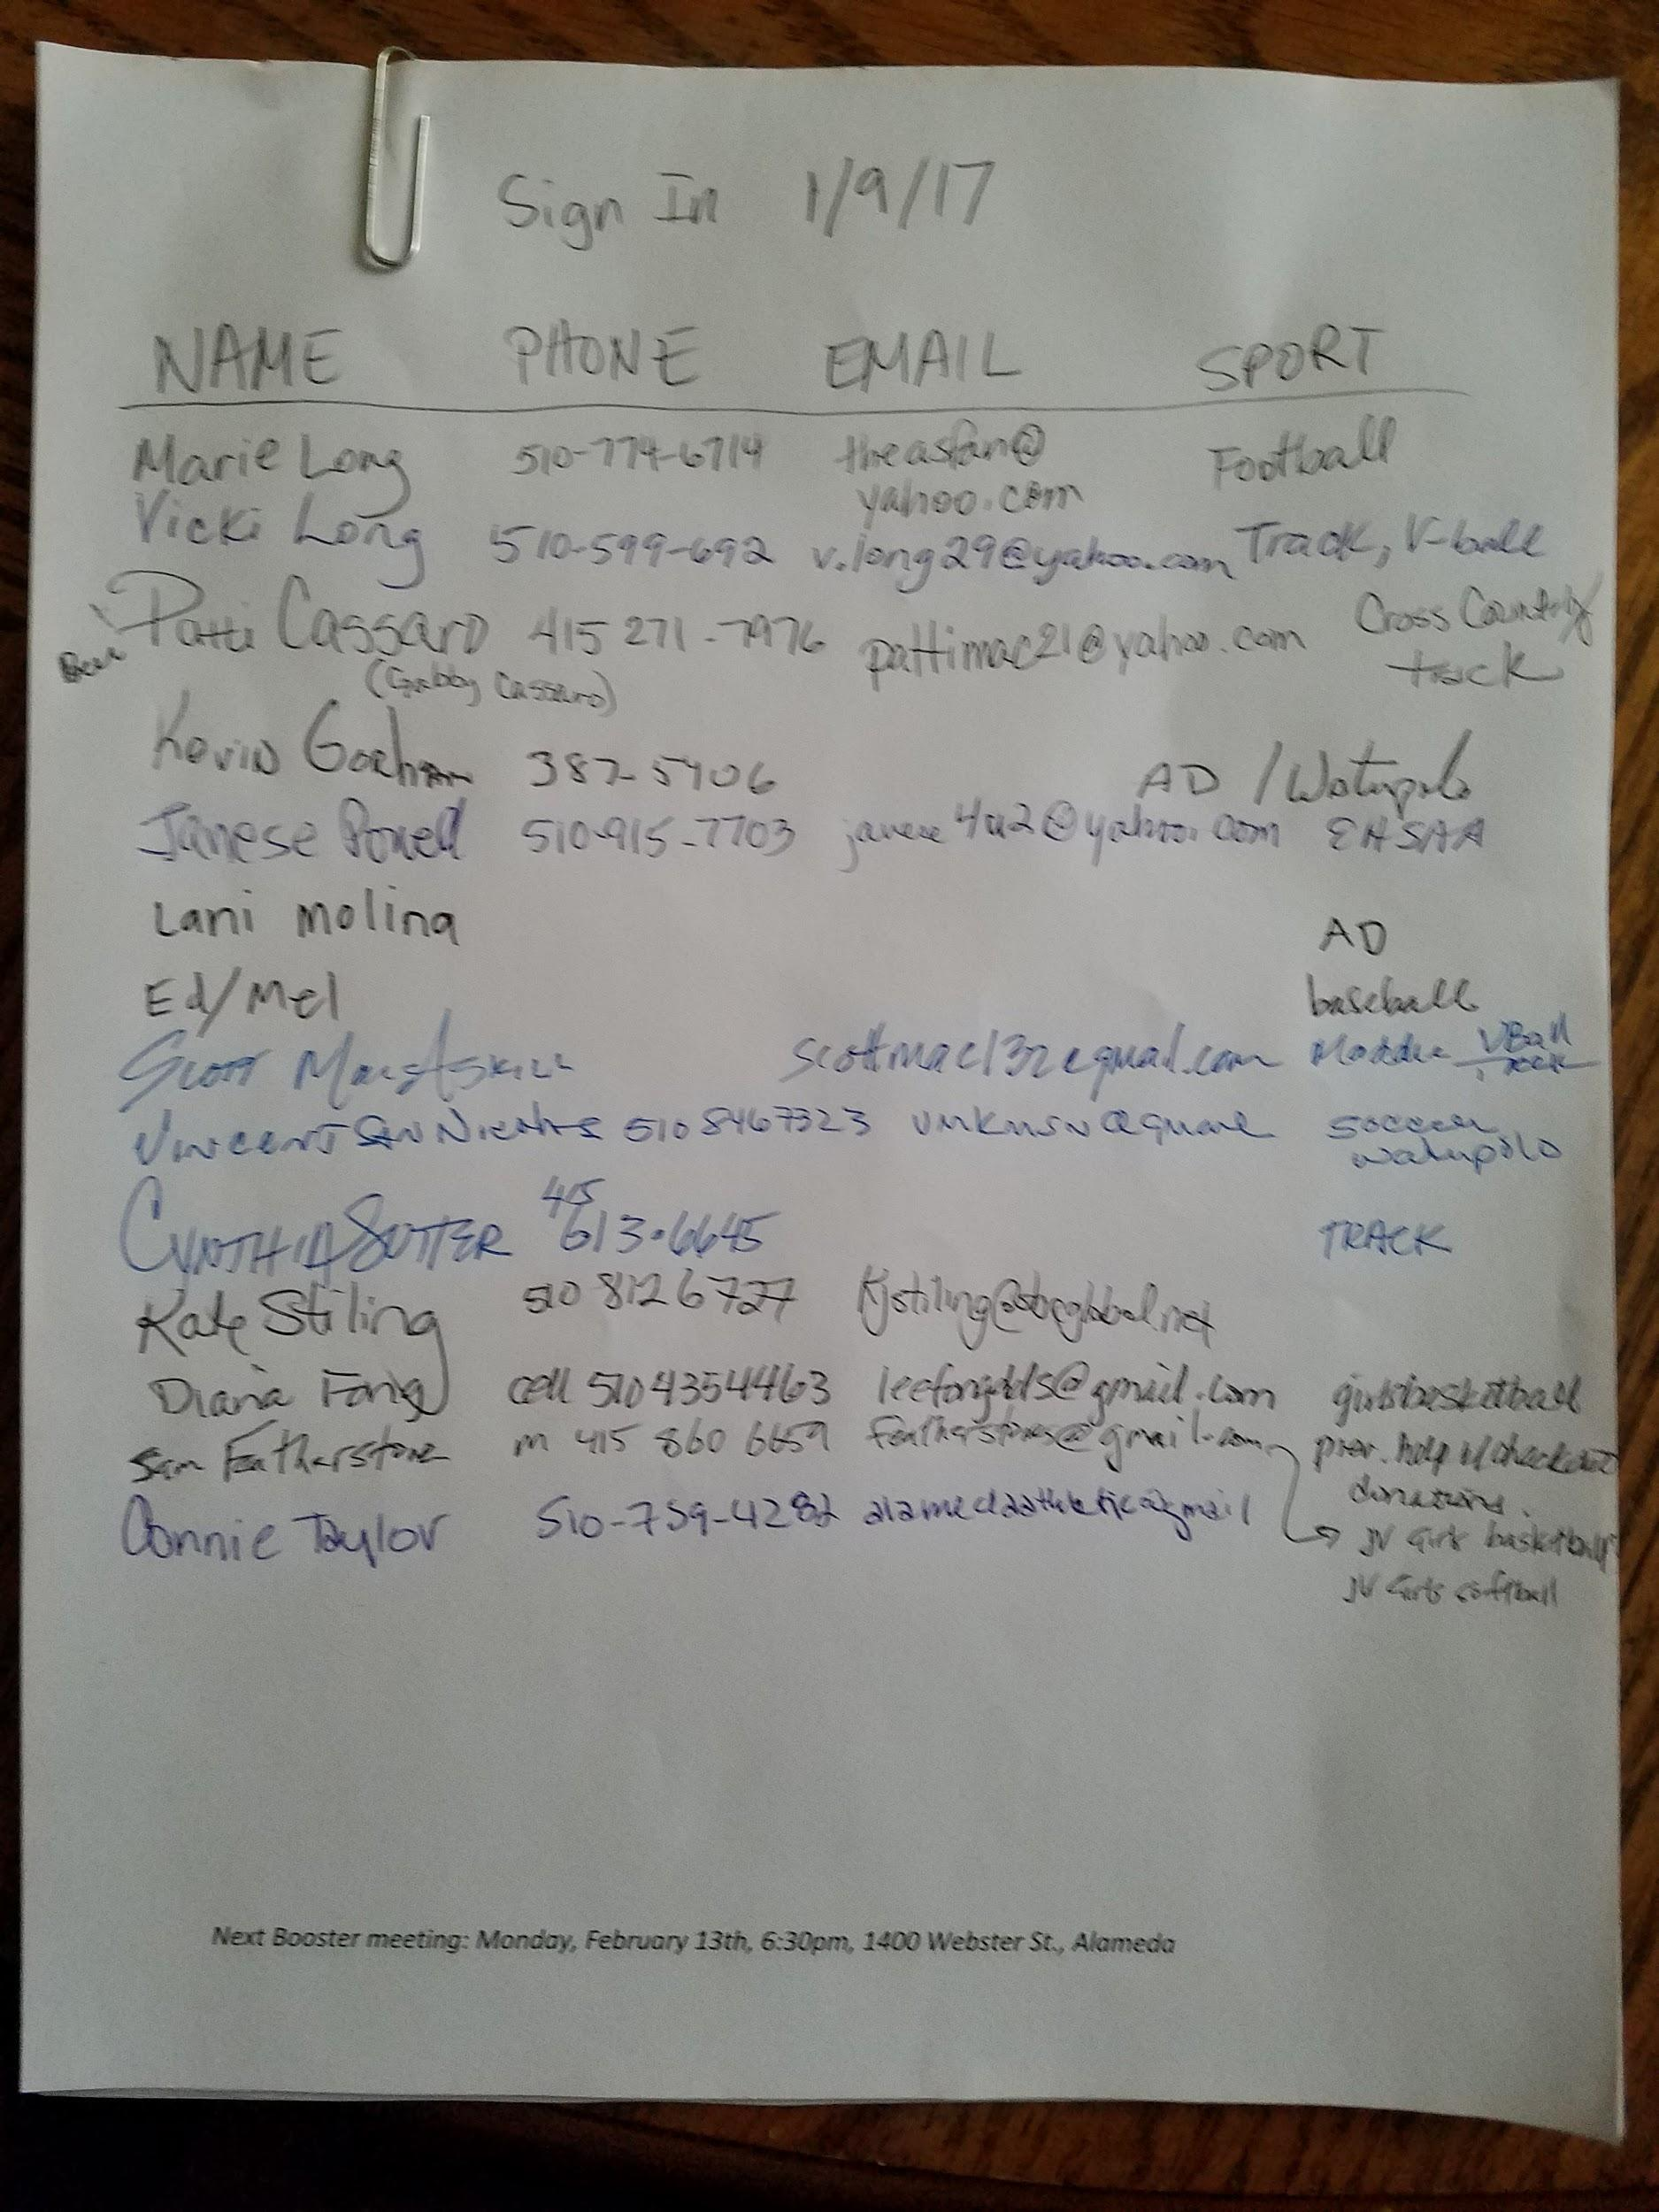 Sign In 1/9/17
NAME PHONE EMAIL SPORT
Marie Long 510-774-6714 theasfan@ Football
yahoo.com
Vicki Long 510-599-692 v.long29@yahoo.com Track, V-ball
Patti Cassaro 415 271-7976 pattimac21@yahoo.com Cross Country
(Gabby Cassaro) track
Kevin Gorham 387-5406 AD / Waterpolo
Janese Powell 510-915-7703 EHSAA
Lani Molina AD
Ed/Mel baseball
Scott scottmac132@gmail.com Maddie VBall
Track
Vincent 510 8467323 soccer
waterpolo
415
CYNTHIA SUTTER 613-6645 TRACK
Kate Stiling 510 812 6727 Kjstiling@sbcglobal.net
Diana Fong cell 510 4354463 leefongdds@gmail.com girls basketball
Sam Featherstone m 415 860 6659 @gmail.com help w/
donations.
Connie Taylor 510-759-4282 alamedaathletic@gmail JV Girls basketball
JV Girls softball
Next Booster meeting: Monday, February 13th, 6:30pm, 1400 Webster St., Alameda